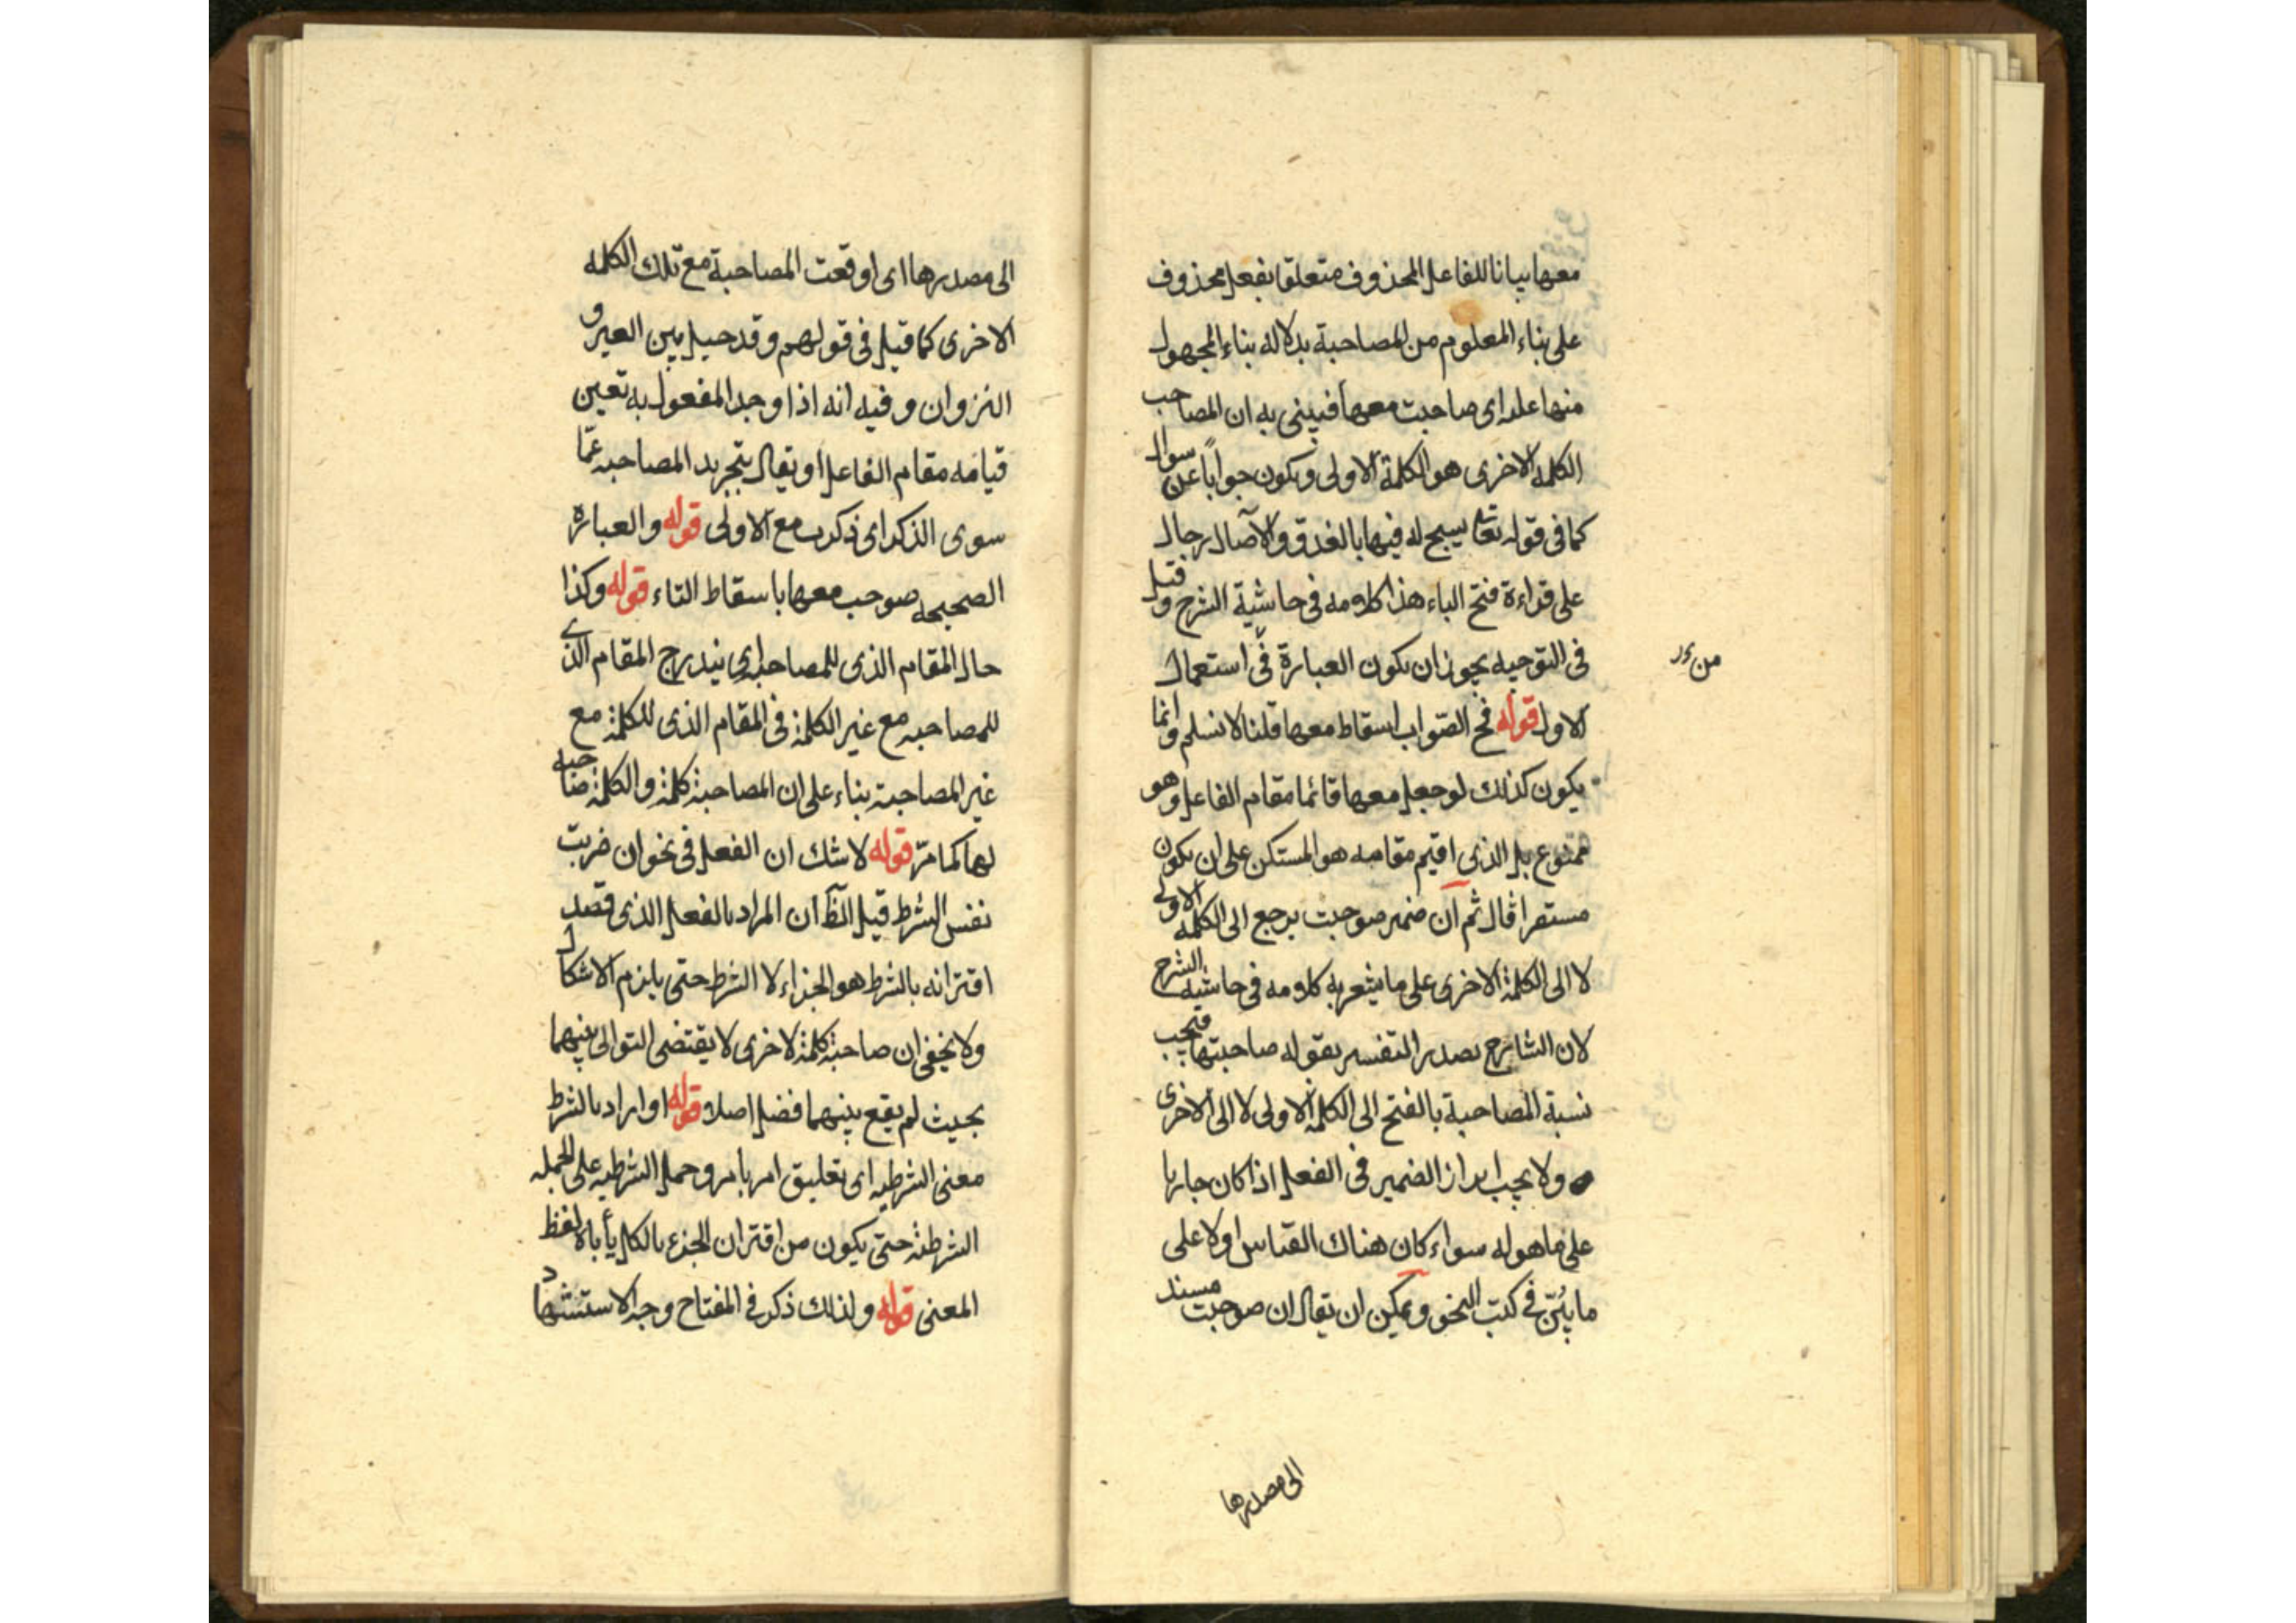 معها بيانا للفاعل المحذوف متعلقا بفعل محذوف
على بناء المعلوم من المصاحبة بدلالة بناء المجهول
منها عليه اى صاحبت معها فيبنى به ان المصاحب
الكلمة الاخرى هو الكلمة الاولى ويكون جوابا عن سوال
كما فى قوله تعا يسبح له فيها بالغدو والآصال رجال
على قراءة فتح الباء هذا كلامه فى حاشية الشرح وقيل
فى التوجيه يجوز ان يكون العبارة فى استعمال
من
الاول قوله فح الصواب اسقاط معها قلنا لا نسلم وانما
يكون كذلك لو جعل معها قائما مقام الفاعل وهو
ممنوع بل الذى اقيم مقامه هو المستكن على ان يكون
مستقرا قال ثم ان ضمير صوحبت يرجع الى الكلمة الاولى
لا الى الكلمة الاخرى على ما يشعر به كلامه فى حاشية الشرح
لان الشارح بصدر التفسير بقوله صاحبتها فتجب
نسبة المصاحبة بالفتح الى الكلمة الاولى لا الى الاخرى
ولا يجب ابراز الضمير فى الفعل اذا كان جاريا
على ما هو له سواء كان هناك القباس اولا على
ما بين فى كتب النحو ويمكن ان يقال ان صوحبت مسند
الى مصدرها
الى مصدرها اى اوقعت المصاحبة مع تلك الكلمه
الاخرى كما قيل فى قولهم وقد حيل بين العير و
النزوان وفيه انه اذا وجد المفعول به تعين
قيامه مقام الفاعل او يقال بتجريد المصاحبه عما
سوى الذكر اى ذكرت مع الاولى قوله والعبارة
الصحيحه صوحب معها باسقاط التاء قوله وكذا
حال المقام الذى للمصاحبه اى يندرج المقام الذى
للمصاحبه مع غير الكلمة فى المقام الذى للكلمة مع
غير المصاحبة بناء على ان المصاحبة كلمة والكلمة صاحبه
لها كما مر قوله لا شك ان الفعل فى نحو ان ضربت
نفس الشرط قيل الظ ان المراد بالفعل الذى قصد
اقترانه بالشرط هو الجزاء لا الشرط حتى يلزم الاشكال
ولا يخفى ان صاحبة كلمة لاخرى لا يقتضى التوالى بينهما
بحيث لم يقع بينهما فضل اصلا قوله او اراد بالشرط
معنى الشرطيه اى تعليق امر بامر وحمل الشرطيه على الجمله
الشرطية حتى يكون من اقتران الجزء بالكل يأباه لفظ
المعنى قوله ولذلك ذكر فى المفتاح وجه الاستشهاد